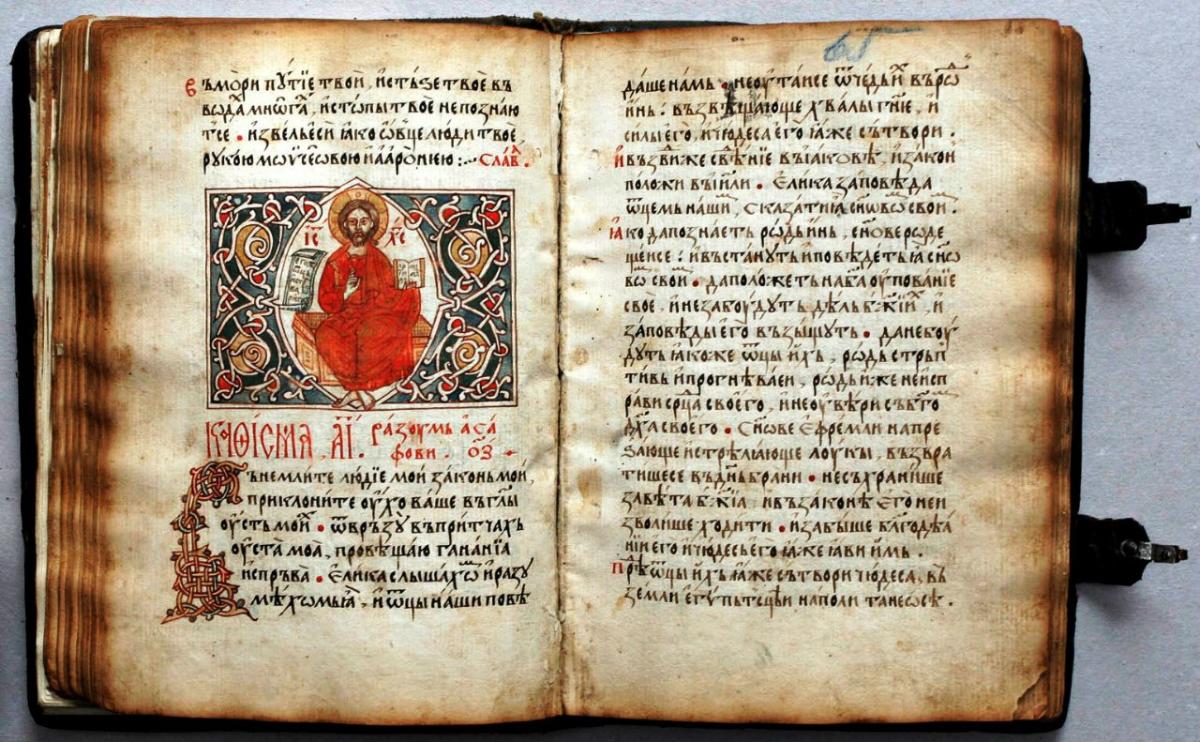 въ мо́ри пꙋ́тїе твоѝ, и҆ стьѕе твоѐ въ
вода́ мнѡ́га, и҆ стопы̀ твоѐ не познаю
тсе • и҆звель є҆сѝ ꙗ҆ко ѻ҆вце люди твоѐ,
рꙋкою мѡѵсе́ѡвою и҆ а҆арѡ́нїею :~ Сла́в .
І҆С Х҆С
Каѳїсма аі . Ра́зꙋмь а҆са
фови . о҃з
Въне́млите лю́дїе моѝ зако́нь мои,
приклони́те ᲂу҆́хо ва́ше въ гл҃ы
ᲂу҆сть мои́х • ѿврь́зꙋ въ при́тчахь
ᲂу҆ста̀ моа̀, провѣща́ю гана́нїа
и҆спрьва • Е҆ли́ка слы́шахѡ и҆ разꙋ
мѣ́хѡмь ꙗ҆̀, и҆ ѻ҆тци на́ши повѣ
да́ше на́мь • не ᲂу҆таи́се ѿ че́дь и҆́х вь рѡ́
и҆́нь : възвѣща́юще хвалы̀ гн҃їе, и҆
си́лы є҆го̀, и҆ чю́деса є҆го̀ ꙗ҆́же сътвори .
И҆ въздви́же свѣ́нїе въ і҆а́ковѣ, и҆ зако́н
положи въ і҆и҃ли • Е҆ли́ка за́повѣда
ѻ҆ц҃емь на́ши, сказа́ти ꙗ҆̀ сн҃овѡ свои .
Ꙗ҆́ко да позна́еть рѡ́дь и҆́нь, сн҃ове роде
ще́исе : и҆ въста́нꙋть и҆ повѣ́деть ꙗ҆̀ сн҃о
вѡ свои • да поло́жеть на б҃а ᲂу҆пова́нїе
своѐ, и҆ не забꙋ́дꙋть дѣ́ль б҃жїи́х, и҆
за́повѣды є҆го̀ възы́щꙋть • да не бꙋ́
дꙋть ꙗ҆́коже ѻ҆ц҃ы и҆́хъ, рѡ́дь стрьп
ти́вь и҆ прогнѣ́ваеи, рѡ́дь и҆́же не и҆сп
ра́ви ср҃ца своего̀, и҆ не ᲂу҆вѣ́ри съ б҃го
дх҃а своего̀ • Сн҃ове Е҆фре́мли напре
ѕа́юще и҆ стрѣля́юще лоукы, възвра
ти́шесе въ дн҃ь бра́ни • не съхрани́ше
завѣ́та б҃жїа и҆ въ зако́нѣ є҆го̀ не и
зво́лише ходи́ти • и҆ забы́ше бл҃годѣа́
нїи є҆го̀ и҆ чю́десь є҆го̀ ꙗ҆́же ꙗ҆вѝ и҆мь .
Прѣ ѻ҆ц҃ы и҆́хъ ꙗ҆́же сътвори чю́деса, въ
земли е҆гу́пьтсцѣи на поли танеѡсѣ .